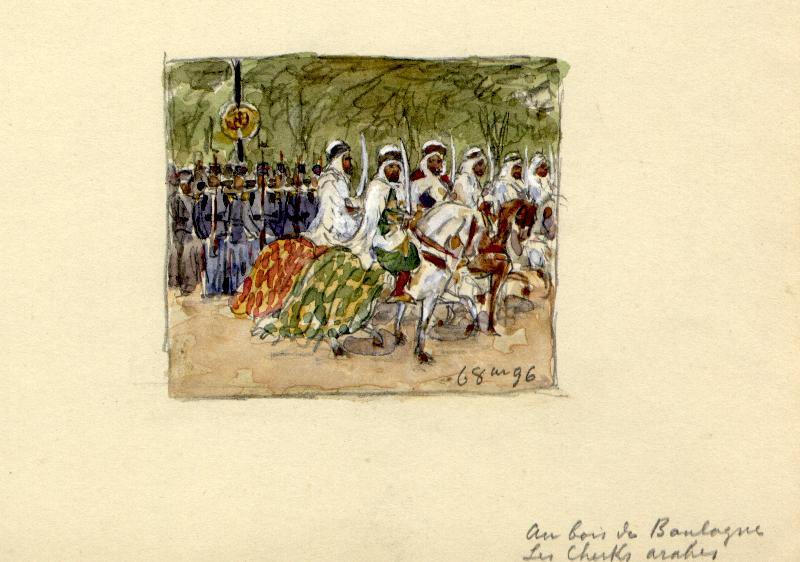 6 8bre 96
Au bois de Boulogne
Les Cheiks arabes